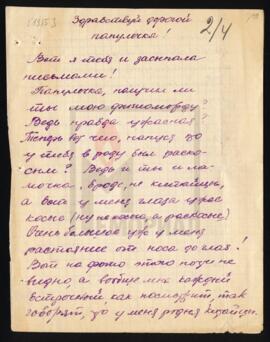 Здравствуй дорогой
папулочка!
2/4
Вот я тебя и засыпала
письмами!
Папулочка, получил ли
ты мою физиоморду?
Ведь правда ужасная?
Теперь вот что, папуля, до
у тебя в роду был раско-
сым? Ведь и ты и ма-
мочка, вроде, не китайцы,
а вот у меня глаза ужас
косые (ну не косые, а раскосые)
Очень большое уж у меня
растояние от носа до глаз!
Вот на фото этого почти не
видно, а вообще мне каждый
встречный как посмотрит, так
говорят, до у меня родня китайцы.